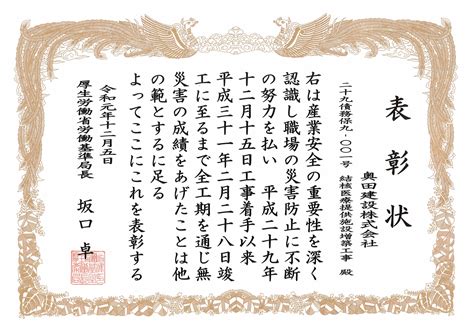 表彰状
奥田建設株式会社
二十九債務保九-〇〇一号 結核医療提供施設増築工事 殿
右は産業安全の重要性を深く
認識し職場の災害防止に不断
の努力を払い 平成二十九年
十二月十五日工事着手以来
平成三十一年二月二十八日竣
工に至るまで全工期を通じ無
災害の成績をあげたことは他
の範とするに足る
よってここにこれを表彰する
令和元年十二月五日
厚生労働省労働基準局長
坂口 卓